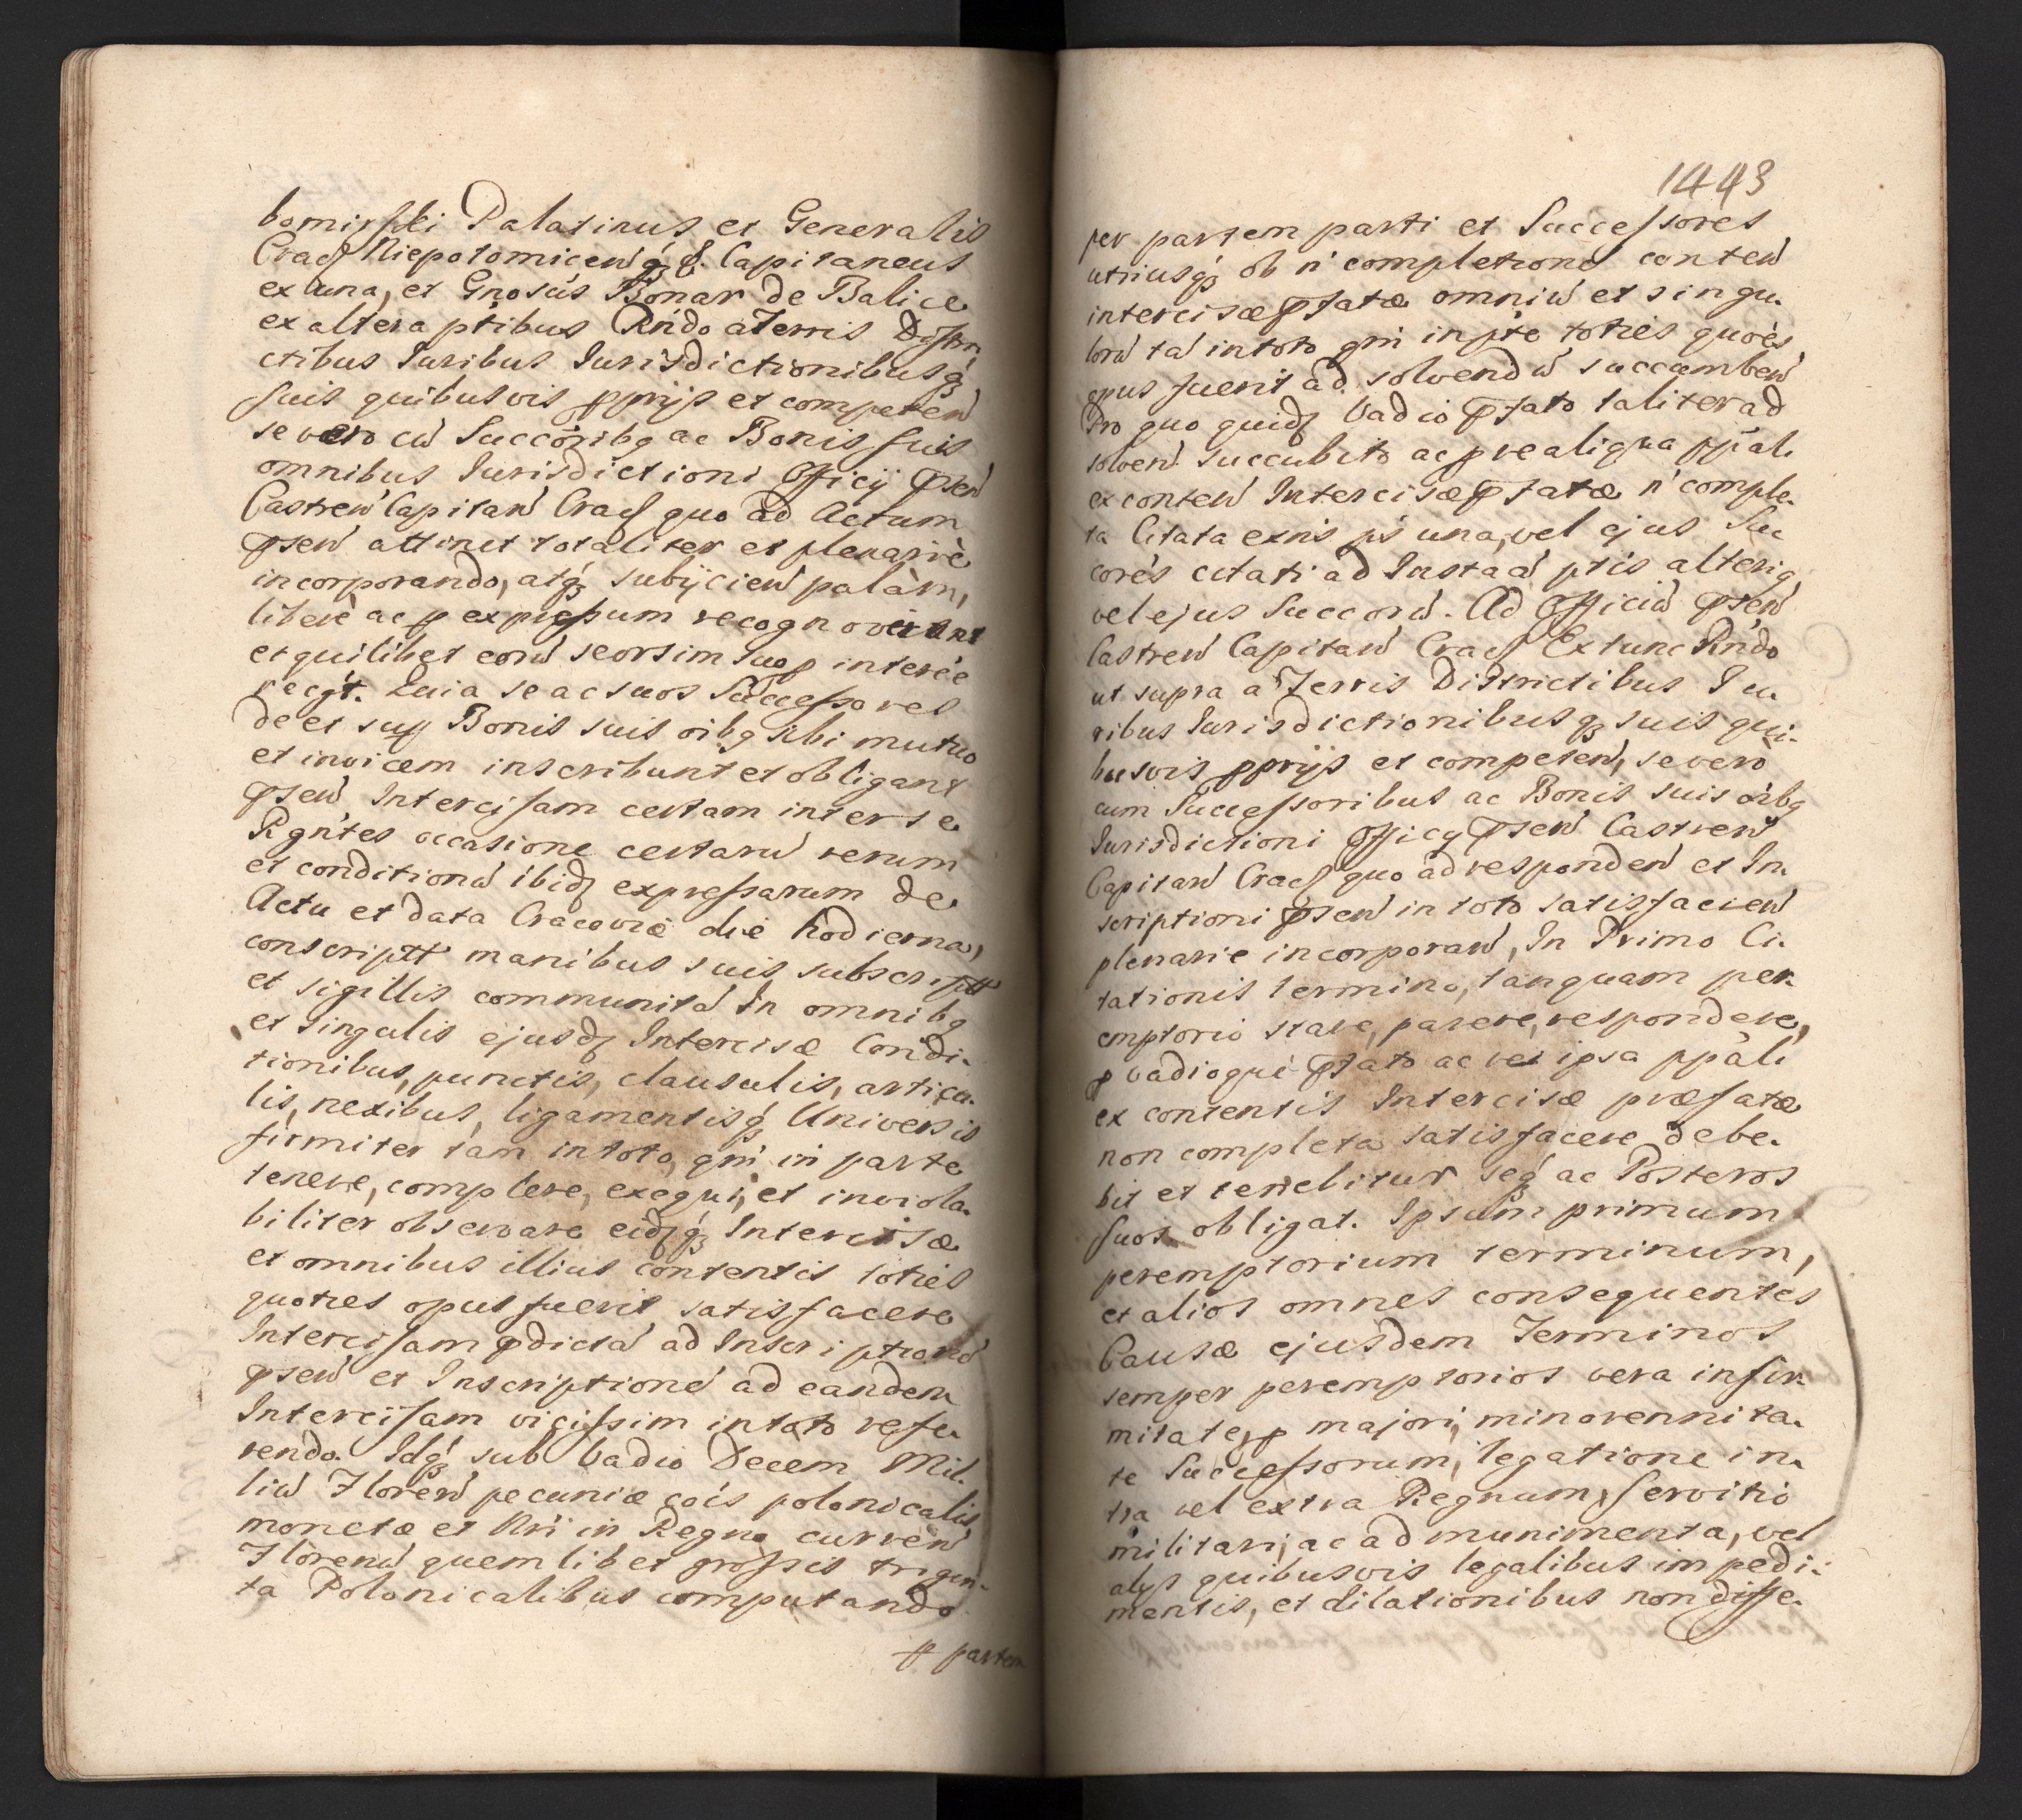 bomirski Palatinus et Generalis
Crac Niepolomicenq Capitaneus
ex una, et Gnosus Bonar de Balice
ex altera ptibus Rndo a Terris Distri
ctibus Iuribus Iurisdictionibusq
suis quibusvis pprijs et competen
se vero cu Succoribq ac Bonis suis
omnibus Iurisdictioni Officij pnsen
Castren Capitan Crac quo ad Actum
psen attinet totaliter et plenarie
incorporando, atq subijcien palam,
libere ac p expressum recognoverunt
et quilibet eoru seorsim suo p interee
recgt. Quia se ac suos Successores
de et sup Bonis suis oibq sibi mutuo
et invicem inscribunt et obligant
psen Intercisam certam inter se
Rgntes occasione certaru rerum
et conditionu ibid expressarum de
Actu et data Cracoviæ die hodierna,
conscriptt manibus suis subscriptt
et sigillis communita In omnibq
et singulis ejusd Intercisæ Condi-
tionibus, punctis, clausulis, articu-
lis, nexibus, ligamentisq Universis
firmiter tam in toto, qm in parte
tenere, complere, exequi, et inviola-
biliter observare eidq Intercisæ
et omnibus illius contentis toties
quoties opus fuerit satisfacere
Intercisam pdicta ad Inscriptione
psen et Inscriptione ad eandem
Intercisam vicissim in toto refe-
rendo. Idq sub Vadio Decem Mil-
liu Floren pecuniæ cois polonicalis
monetæ et Nri in Regno curren
Florenu quemlibet grossis trigin-
ta Polonicalibus computando
p partem
1443
per partem parti et Successores
utriusq ob n completione conten
intercisæ pfatæ omniu et singu-
loru ta in toto qm in pte toties quoties
opus fuerit ad solvendu succumben
Pro quo quid Vadio pfato taliter ad
solven succubito ac pre aliqua ppali
ex conten Intercisæ pfatæ n comple-
ta Citata exnis ps una, vel ejus Suc
cores citati ad Instaa ptis alteriq
vel ejus Succoru. Ad Officiu psen
Castren Capitan Crac Ex tunc Rndo
ut supra a Terris Districtibus Iu-
ribus Iurisdictionibusq suis qui-
busvis pprijs et competen, se vero
cum Successoribus ac Bonis suis oibq
Iurisdictioni Officy psen Castren
Capitan Crac quo ad responden et In-
scriptioni psen in toto satisfacien
plenarie incorporan, In Primo Ci-
tationis termino, tanquam per-
emptorio stare, parere, respondere,
p vadioque pfato ac re ipsa ppali
ex contentis Intercisæ præfatæ
non completa satisfacere debe-
bit et tenebitur seq ac Posteros
suos obligat. Ipsum primum
peremptorium terminum,
et alios omnes consequentes
Causæ ejusdem Terminos
semper peremptorios vera infir-
mitate, p majori, minorennita-
te Successorum, legatione in-
tra vel extra Regnum, servitio
militari, ac ad munimenta, vel
alys quibusvis legalibus impedi-
mentis, et dilationibus non diffe-